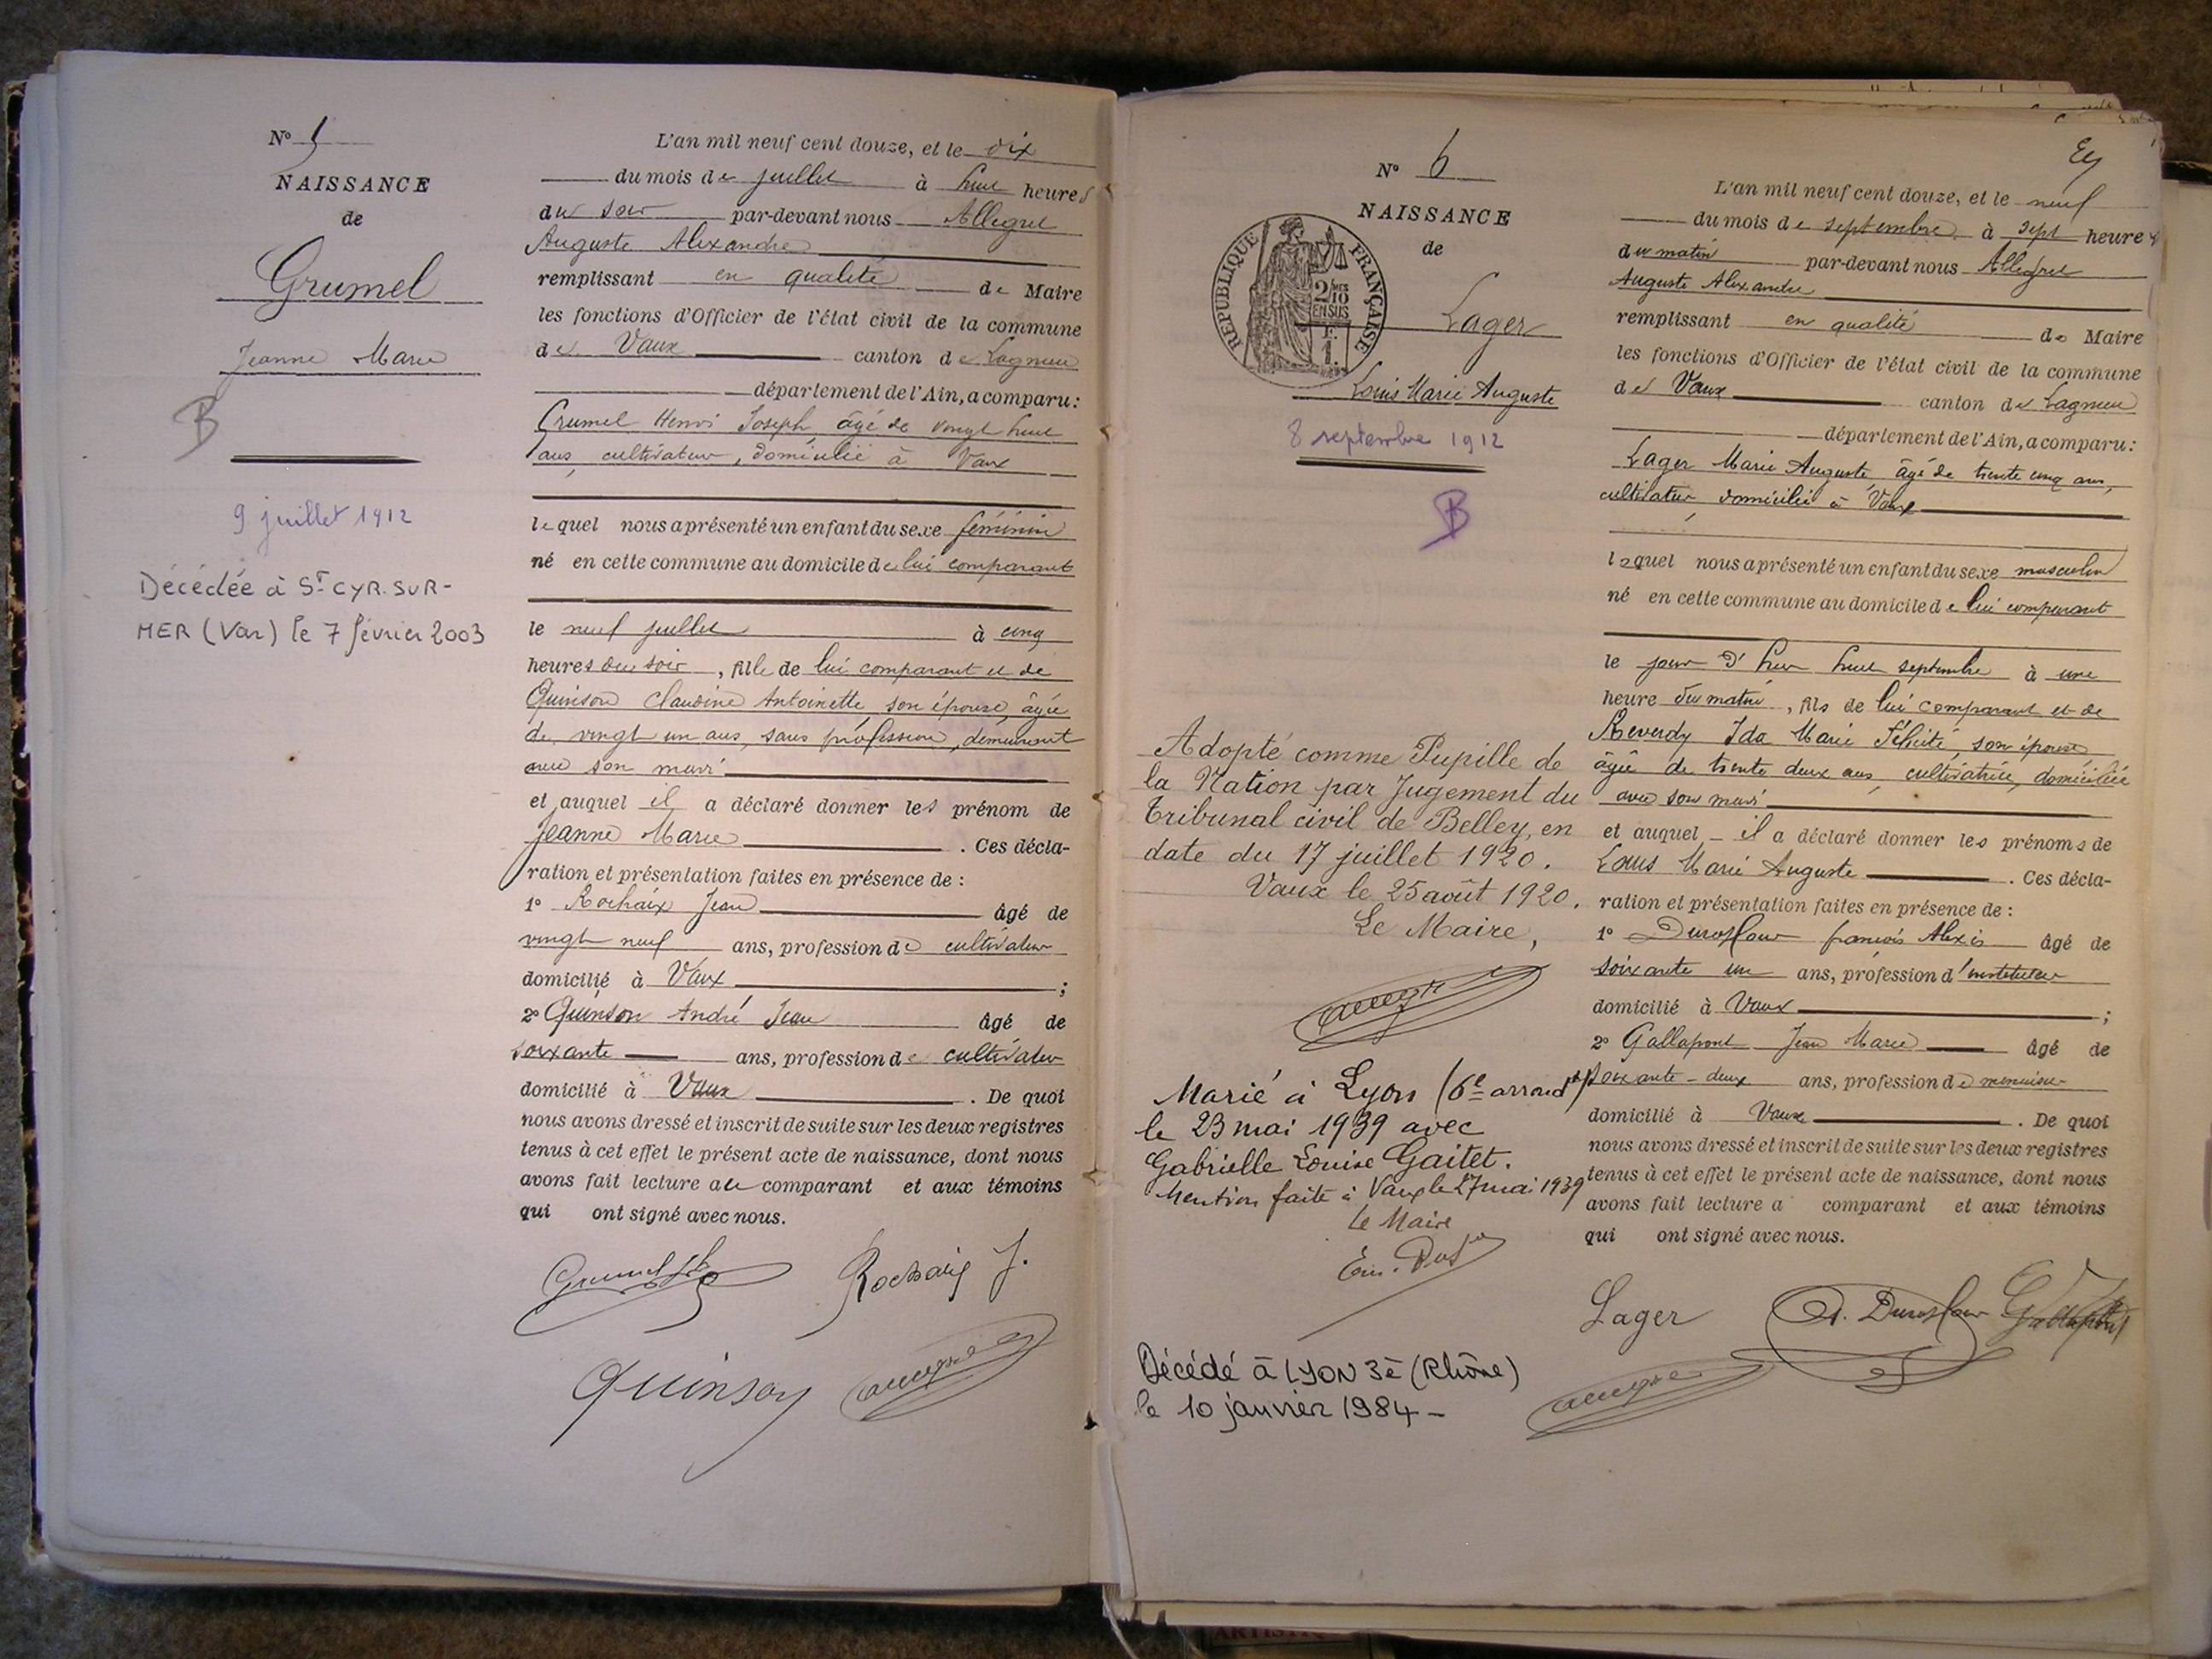 N° 5
NAISSANCE
de
Grumel
Jeanne Marie
B
9 juillet 1912
Décédée à St CYR-SUR-
MER (Var) le 7 février 2003
L'an mil neuf cent douze, et le dix
du mois de juillet à huit heures
du soir par-devant nous Allegret
Auguste Alexandre
remplissant en qualité de Maire
les fonctions d'Officier de l'état civil de la commune
de Vaux canton de Lagnieu
département de l'Ain, a comparu:
Grumel Henri Joseph, âgé de vingt huit
ans, cultivateur, domicilié à Vaux
lequel nous a présenté un enfant du sexe féminin
né en cette commune au domicile de lui comparant
le neuf juillet à cinq
heures du soir, fille de lui comparant et de
Quinson Claudine Antoinette, son épouse, âgée
de vingt un ans, sans profession, demeurant
avec son mari
et auquel il a déclaré donner les prénom de
Jeanne Marie. Ces décla-
ration et présentation faites en présence de :
1° Rochaix Jean âgé de
vingt neuf ans, profession de cultivateur
domicilié à Vaux ;
2° Quinson André Jean âgé de
soixante ans, profession de cultivateur
domicilié à Vaux. De quoi
nous avons dressé et inscrit de suite sur les deux registres
tenus à cet effet le présent acte de naissance, dont nous
avons fait lecture au comparant et aux témoins
qui ont signé avec nous.
Grumel
Rochaix J.
Quinson
N° 6
NAISSANCE
de
RÉPUBLIQUE FRANÇAISE
2/10
EN SUS
F.
1.
Lager
Louis Marie Auguste
8 septembre 1912
B
Adopté comme Pupille de
la Nation par Jugement du
Tribunal civil de Belley, en
date du 17 juillet 1920.
Vaux le 25 août 1920.
Le Maire,
Marié à Lyon (6e arrondt)
le 23 mai 1939 avec
Gabrielle Louise Gaitet.
Mention faite à Vaux le 27 mai 1939
Le Maire
Décédé à LYON 3è (Rhône)
le 10 janvier 1984 -
L'an mil neuf cent douze, et le neuf
du mois de septembre à sept heures
du matin par-devant nous Allegret
Auguste Alexandre
remplissant en qualité de Maire
les fonctions d'Officier de l'état civil de la commune
de Vaux canton de Lagnieu
département de l'Ain, a comparu:
Lager Marie Auguste âgé de trente cinq ans,
cultivateur, domicilié à Vaux
lequel nous a présenté un enfant du sexe masculin
né en cette commune au domicile de lui comparant
le jour d'hier huit septembre à une
heure du matin, fils de lui comparant et de
Reverdy Ida Marie Félicité, son épouse
âgée de trente deux ans, cultivatrice, domiciliée
avec son mari
et auquel il a déclaré donner les prénoms de
Louis Marie Auguste. Ces décla-
ration et présentation faites en présence de :
1° François Alexis âgé de
soixante un ans, profession d'instituteur
domicilié à Vaux ;
2° Gallapont Jean Marie âgé de
soixante-deux ans, profession de menuisier
domicilié à Vaux. De quoi
nous avons dressé et inscrit de suite sur les deux registres
tenus à cet effet le présent acte de naissance, dont nous
avons fait lecture a comparant et aux témoins
qui ont signé avec nous.
Lager
Gallapont